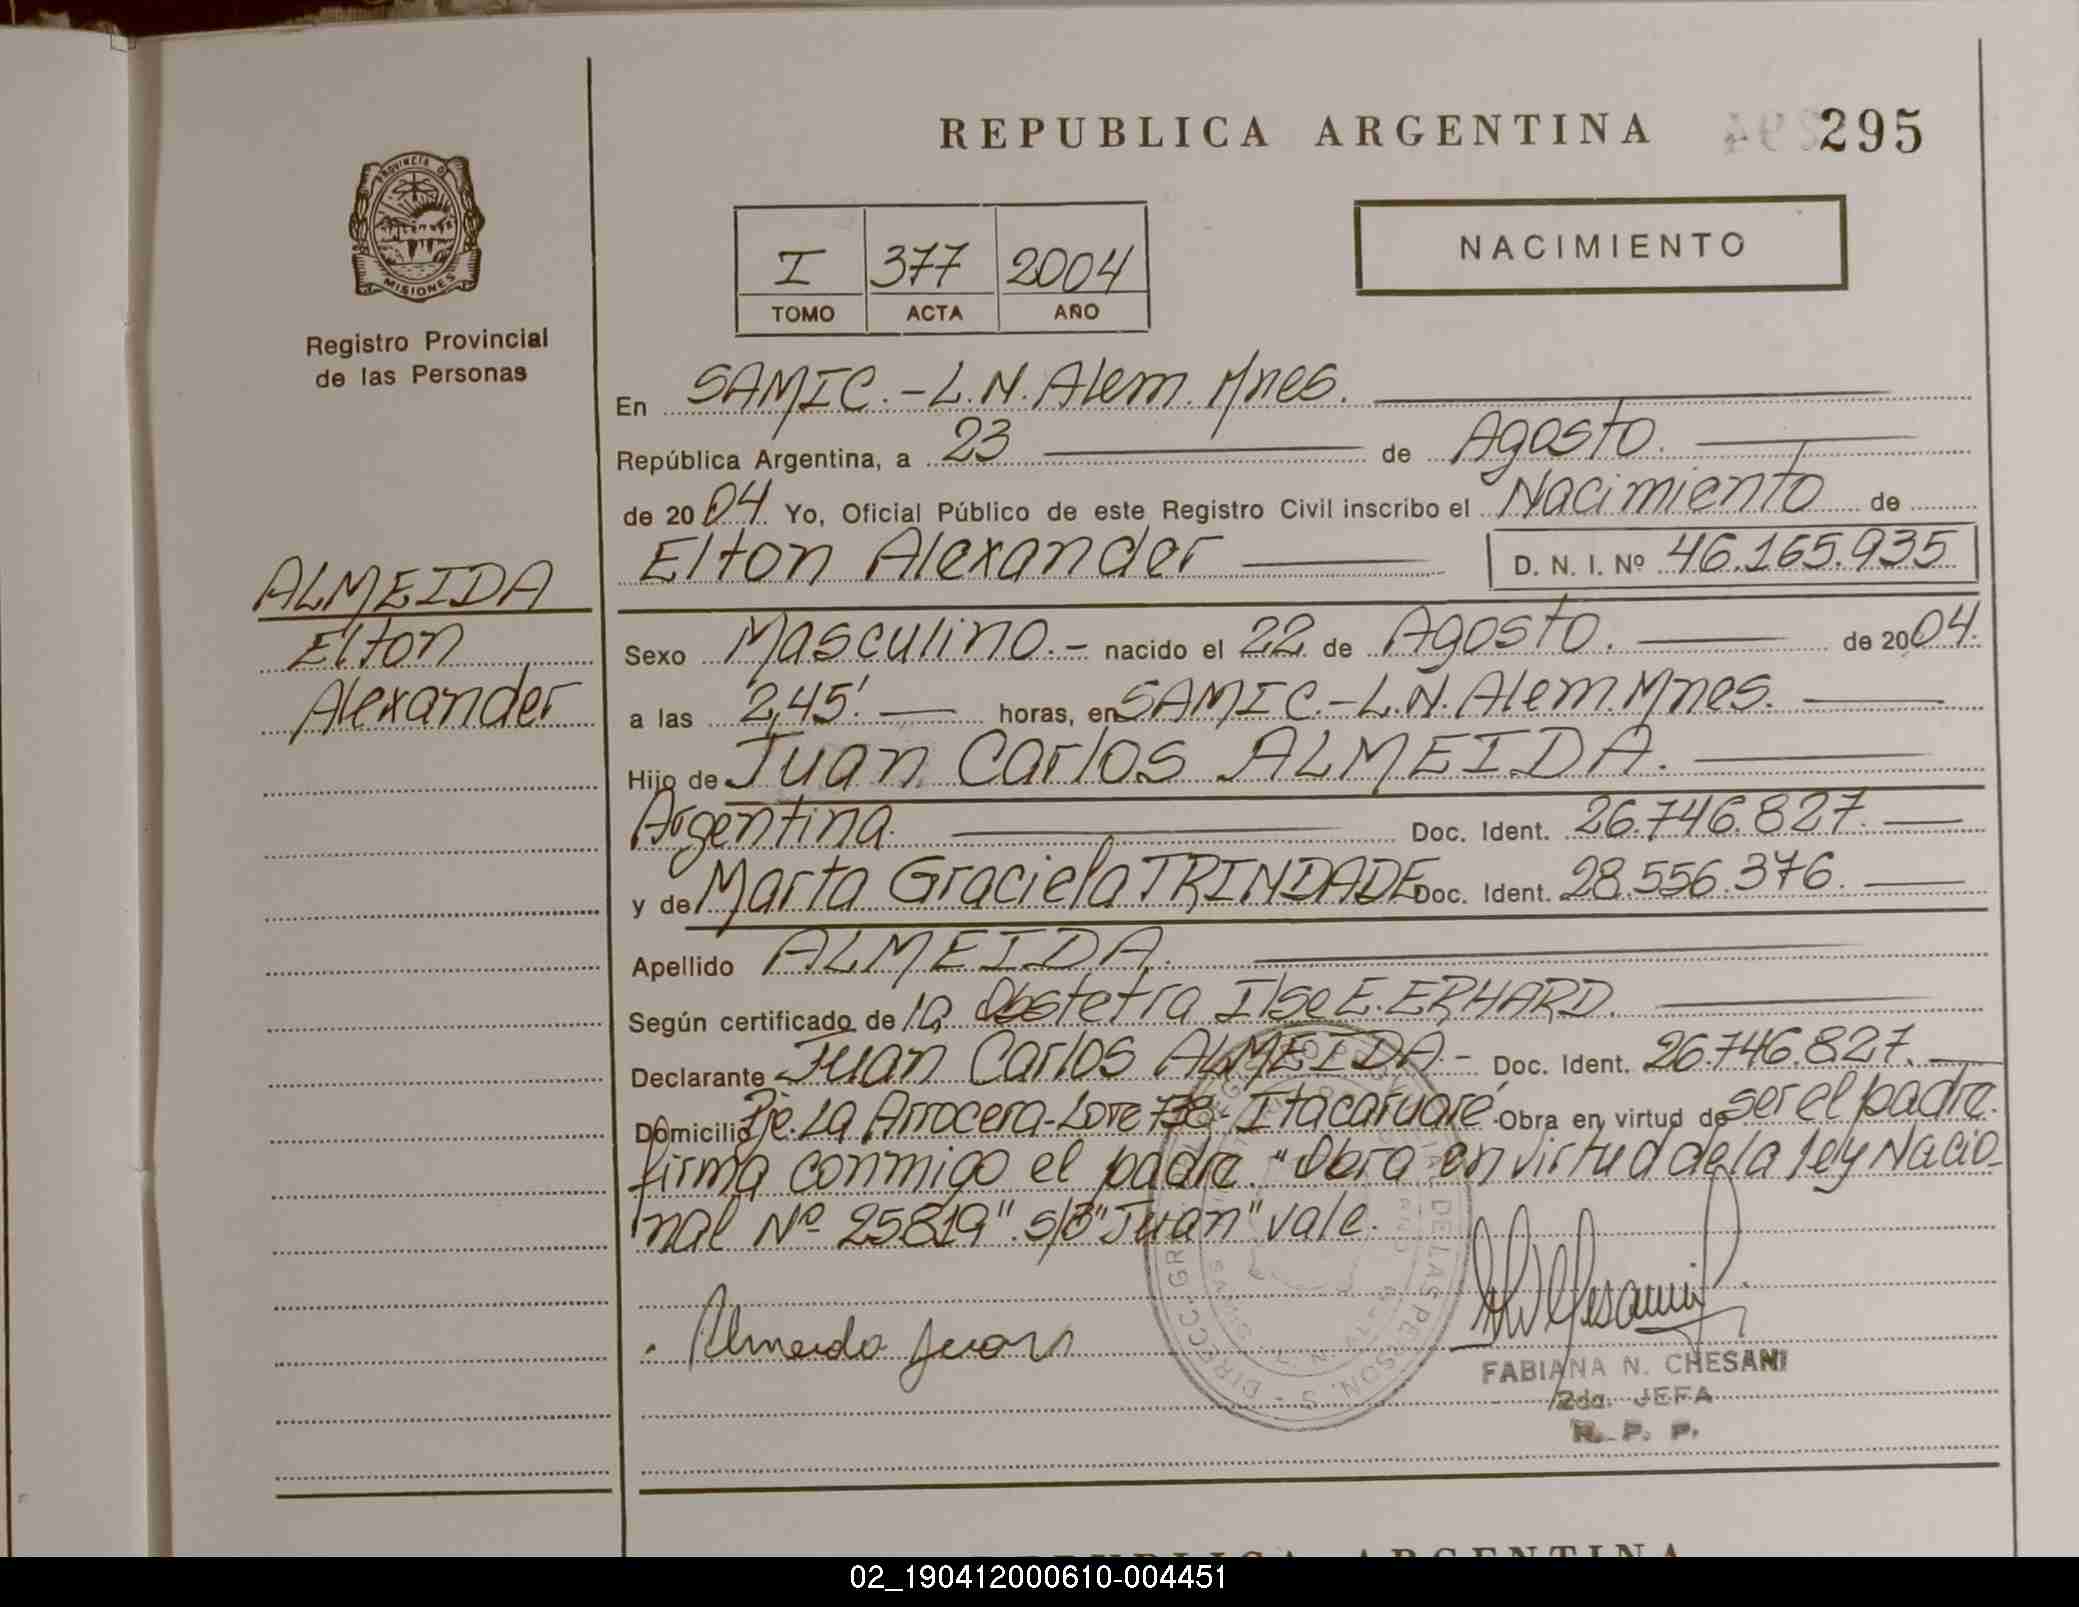 REPUBLICA ARGENTINA 295
PROVINCIA DE
MISIONES
Registro Provincial
de las Personas
I 377 2004
TOMO ACTA AÑO
NACIMIENTO
En SAMIC.-L.N.Alem.Mnes.
República Argentina, a 23 de Agosto.
de 2004. Yo, Oficial Público de este Registro Civil inscribo el Nacimiento de
Elton Alexander D. N. I. Nº 46.165.935
ALMEIDA
Elton
Alexander
Sexo Masculino.- nacido el 22 de Agosto. de 2004.
a las 2,45'. horas, en SAMIC.-L.N.Alem.Mnes.
Hijo de Juan Carlos ALMEIDA.
Argentina. Doc. Ident. 26.746.827.
y de Marta Graciela TRINDADE Doc. Ident. 28.556.376.
Apellido ALMEIDA.
Según certificado de la Obstetra Ilse E. ERHARD.
Declarante Juan Carlos ALMEIDA.- Doc. Ident. 26.746.827.
Domicilio Pje. La Arrocera-Lote 738- Itacaruaré. Obra en virtud de ser el padre.
firma conmigo el padre. "Obra en virtud de la ley Nacio-
nal Nº 25819". S/B "Juan" vale.
Almeida Juan
FABIANA N. CHESANI
2da. JEFA
R. P. P.
REPUBLICA ARGENTINA
02_190412000610-004451